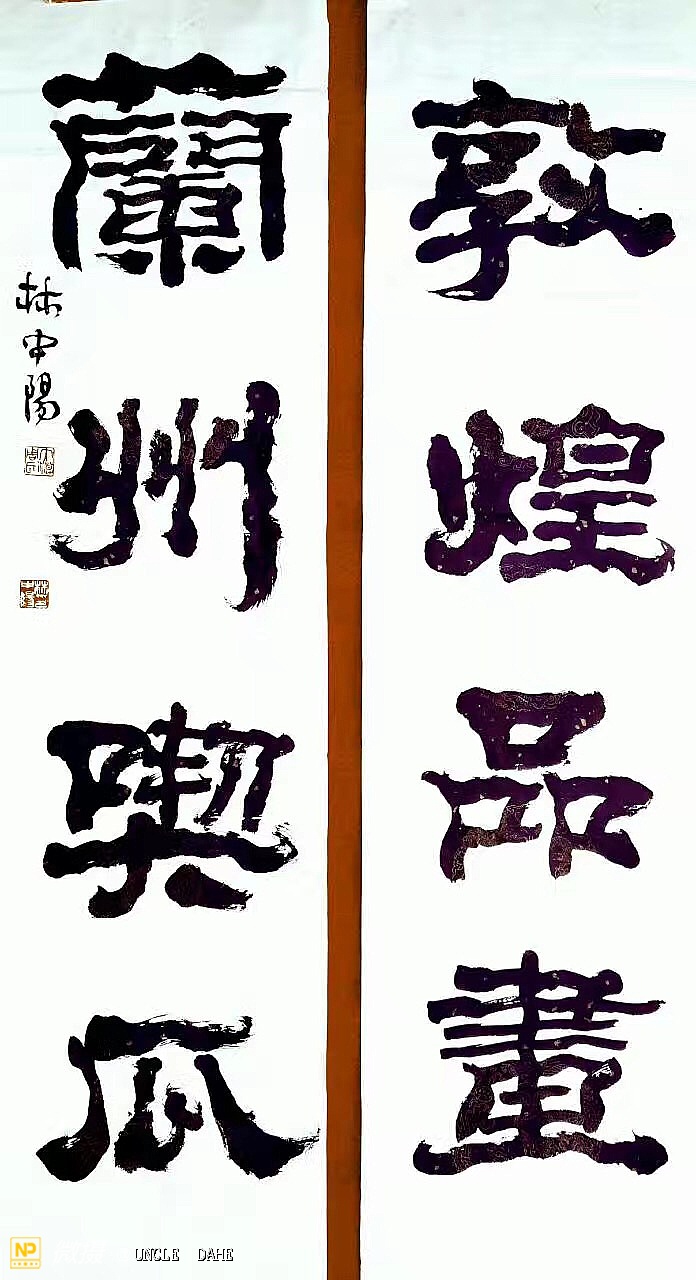 敦煌品畫
蘭州喫瓜
林中陽
NP
UNCLE DAHE